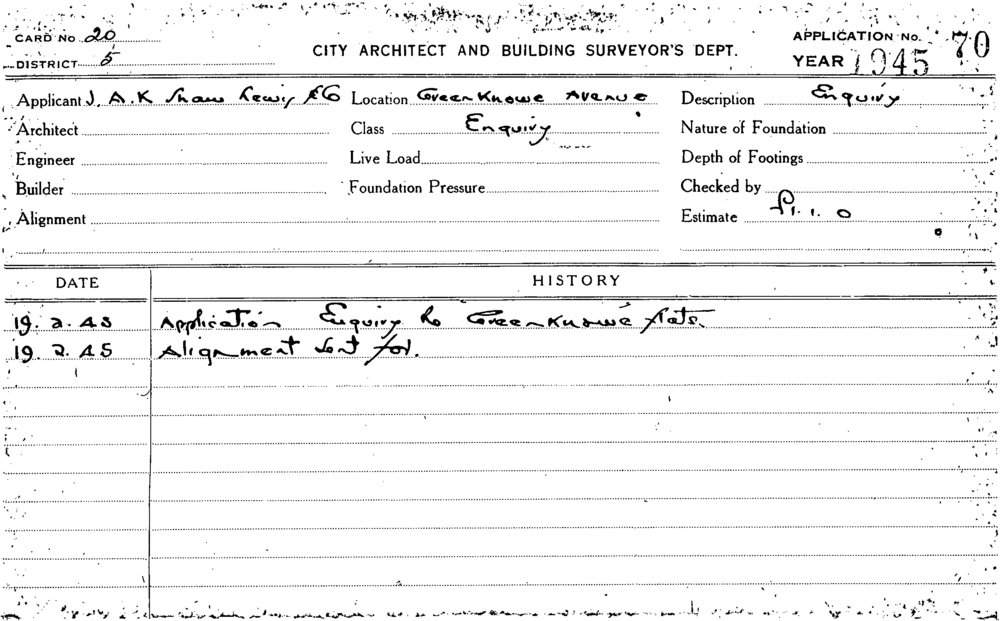 CARD No. 20
DISTRICT 5
CITY ARCHITECT AND BUILDING SURVEYOR'S DEPT.
APPLICATION No. 70
YEAR 1945
Applicant J. A. K Shaw Lewis & Co Location Greenknowe Avenue Description Enquiry
Architect Class Enquiry Nature of Foundation
Engineer Live Load Depth of Footings
Builder Foundation Pressure Checked by
Alignment Estimate £1. 1. 0
DATE HISTORY
19. 2. 45 Application Enquiry Re Greenknowe flats.
19 2. 45 Alignment sent for.